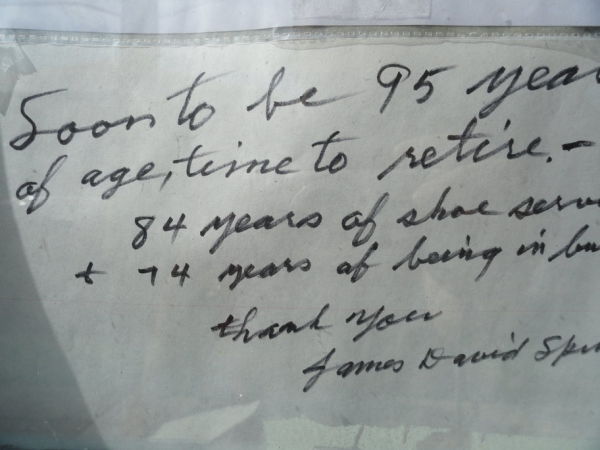 Soon to be 95 year
of age, time to retire. -
84 years of shoe serv
+ 74 years of being in bu
thank you
James David